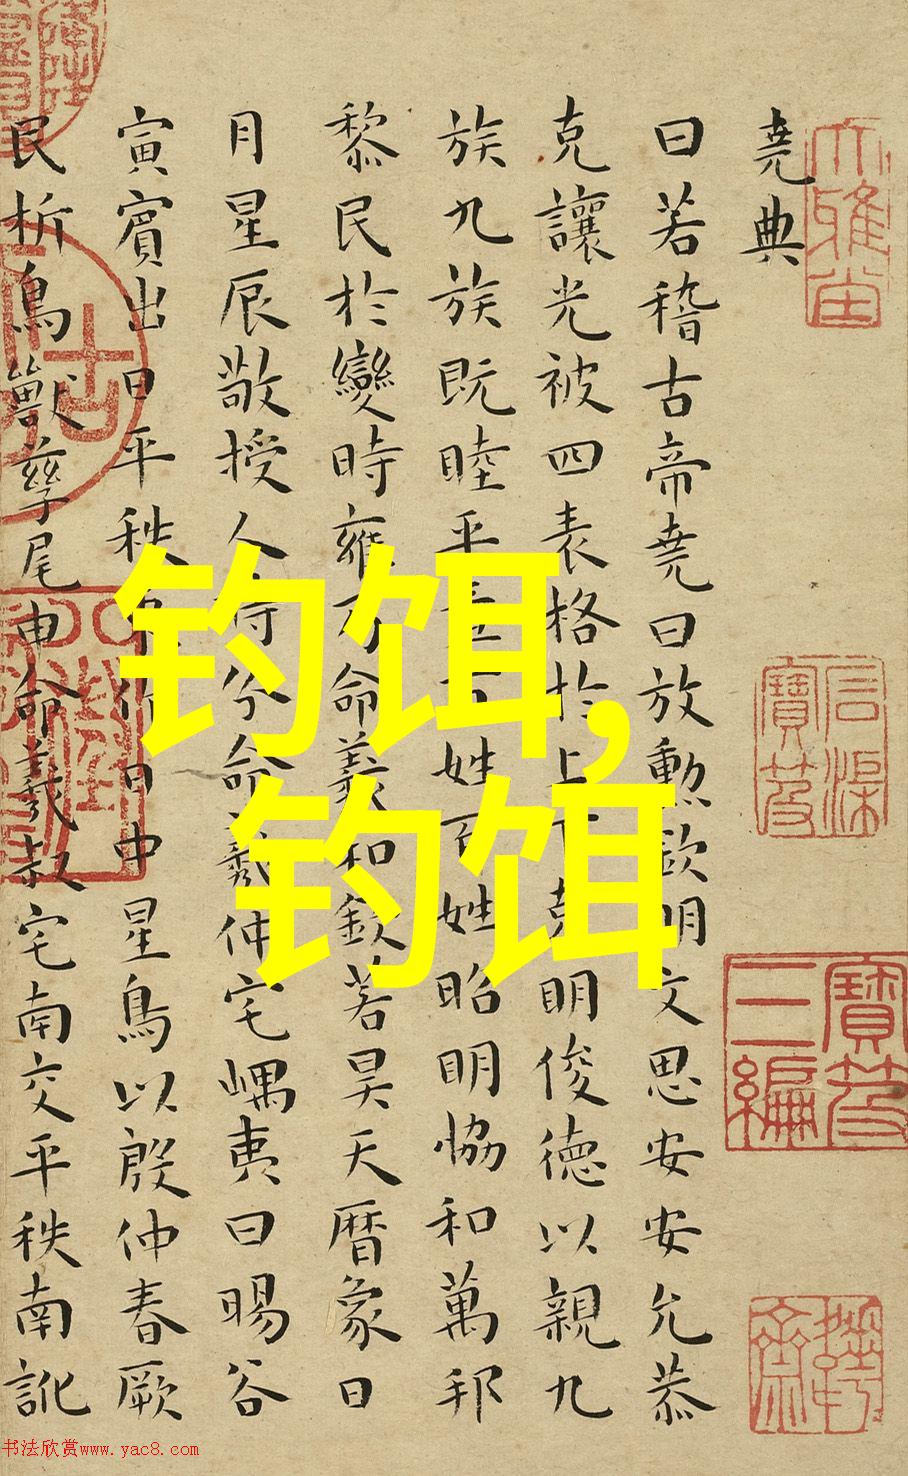 堯典
曰若稽古帝堯曰放勳欽明文思安安允恭
克讓光被四表格於上下克明俊德以親九
族九族既睦平章百姓百姓昭明恊和萬邦
黎民於變時雍乃命羲和欽若昊天曆象日
月星辰敬授人時分命羲仲宅嵎夷曰暘谷
寅賓出日平秩東作日中星鳥以殷仲春厥
民析鳥獸孳尾申命羲叔宅南交平秩南訛
石渠寶笈
寶笈三編
钓饵,
钓饵
书法欣赏www.yac8.com